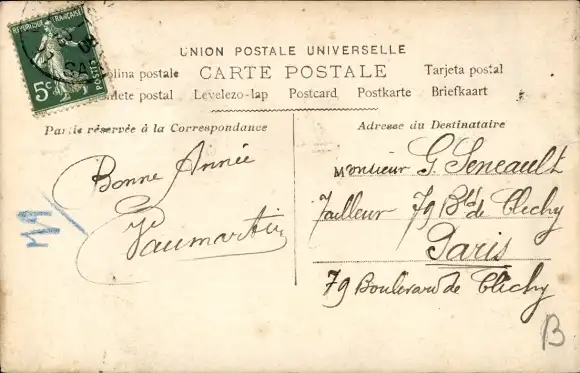 REPUBLIQUE FRANÇAISE
5c POSTES
08
UNION POSTALE UNIVERSELLE
olina postale CARTE POSTALE Tarjeta postal
lete postal Levelezo-lap Postcard Postkarte Briefkaart
Partie réservée à la Correspondance
Adresse du Destinataire
Bonne Année
Paumartin
Monsieur G. Seneault
Tailleur 79 Bld de Clichy
Paris
79 Boulevard de Clichy
B